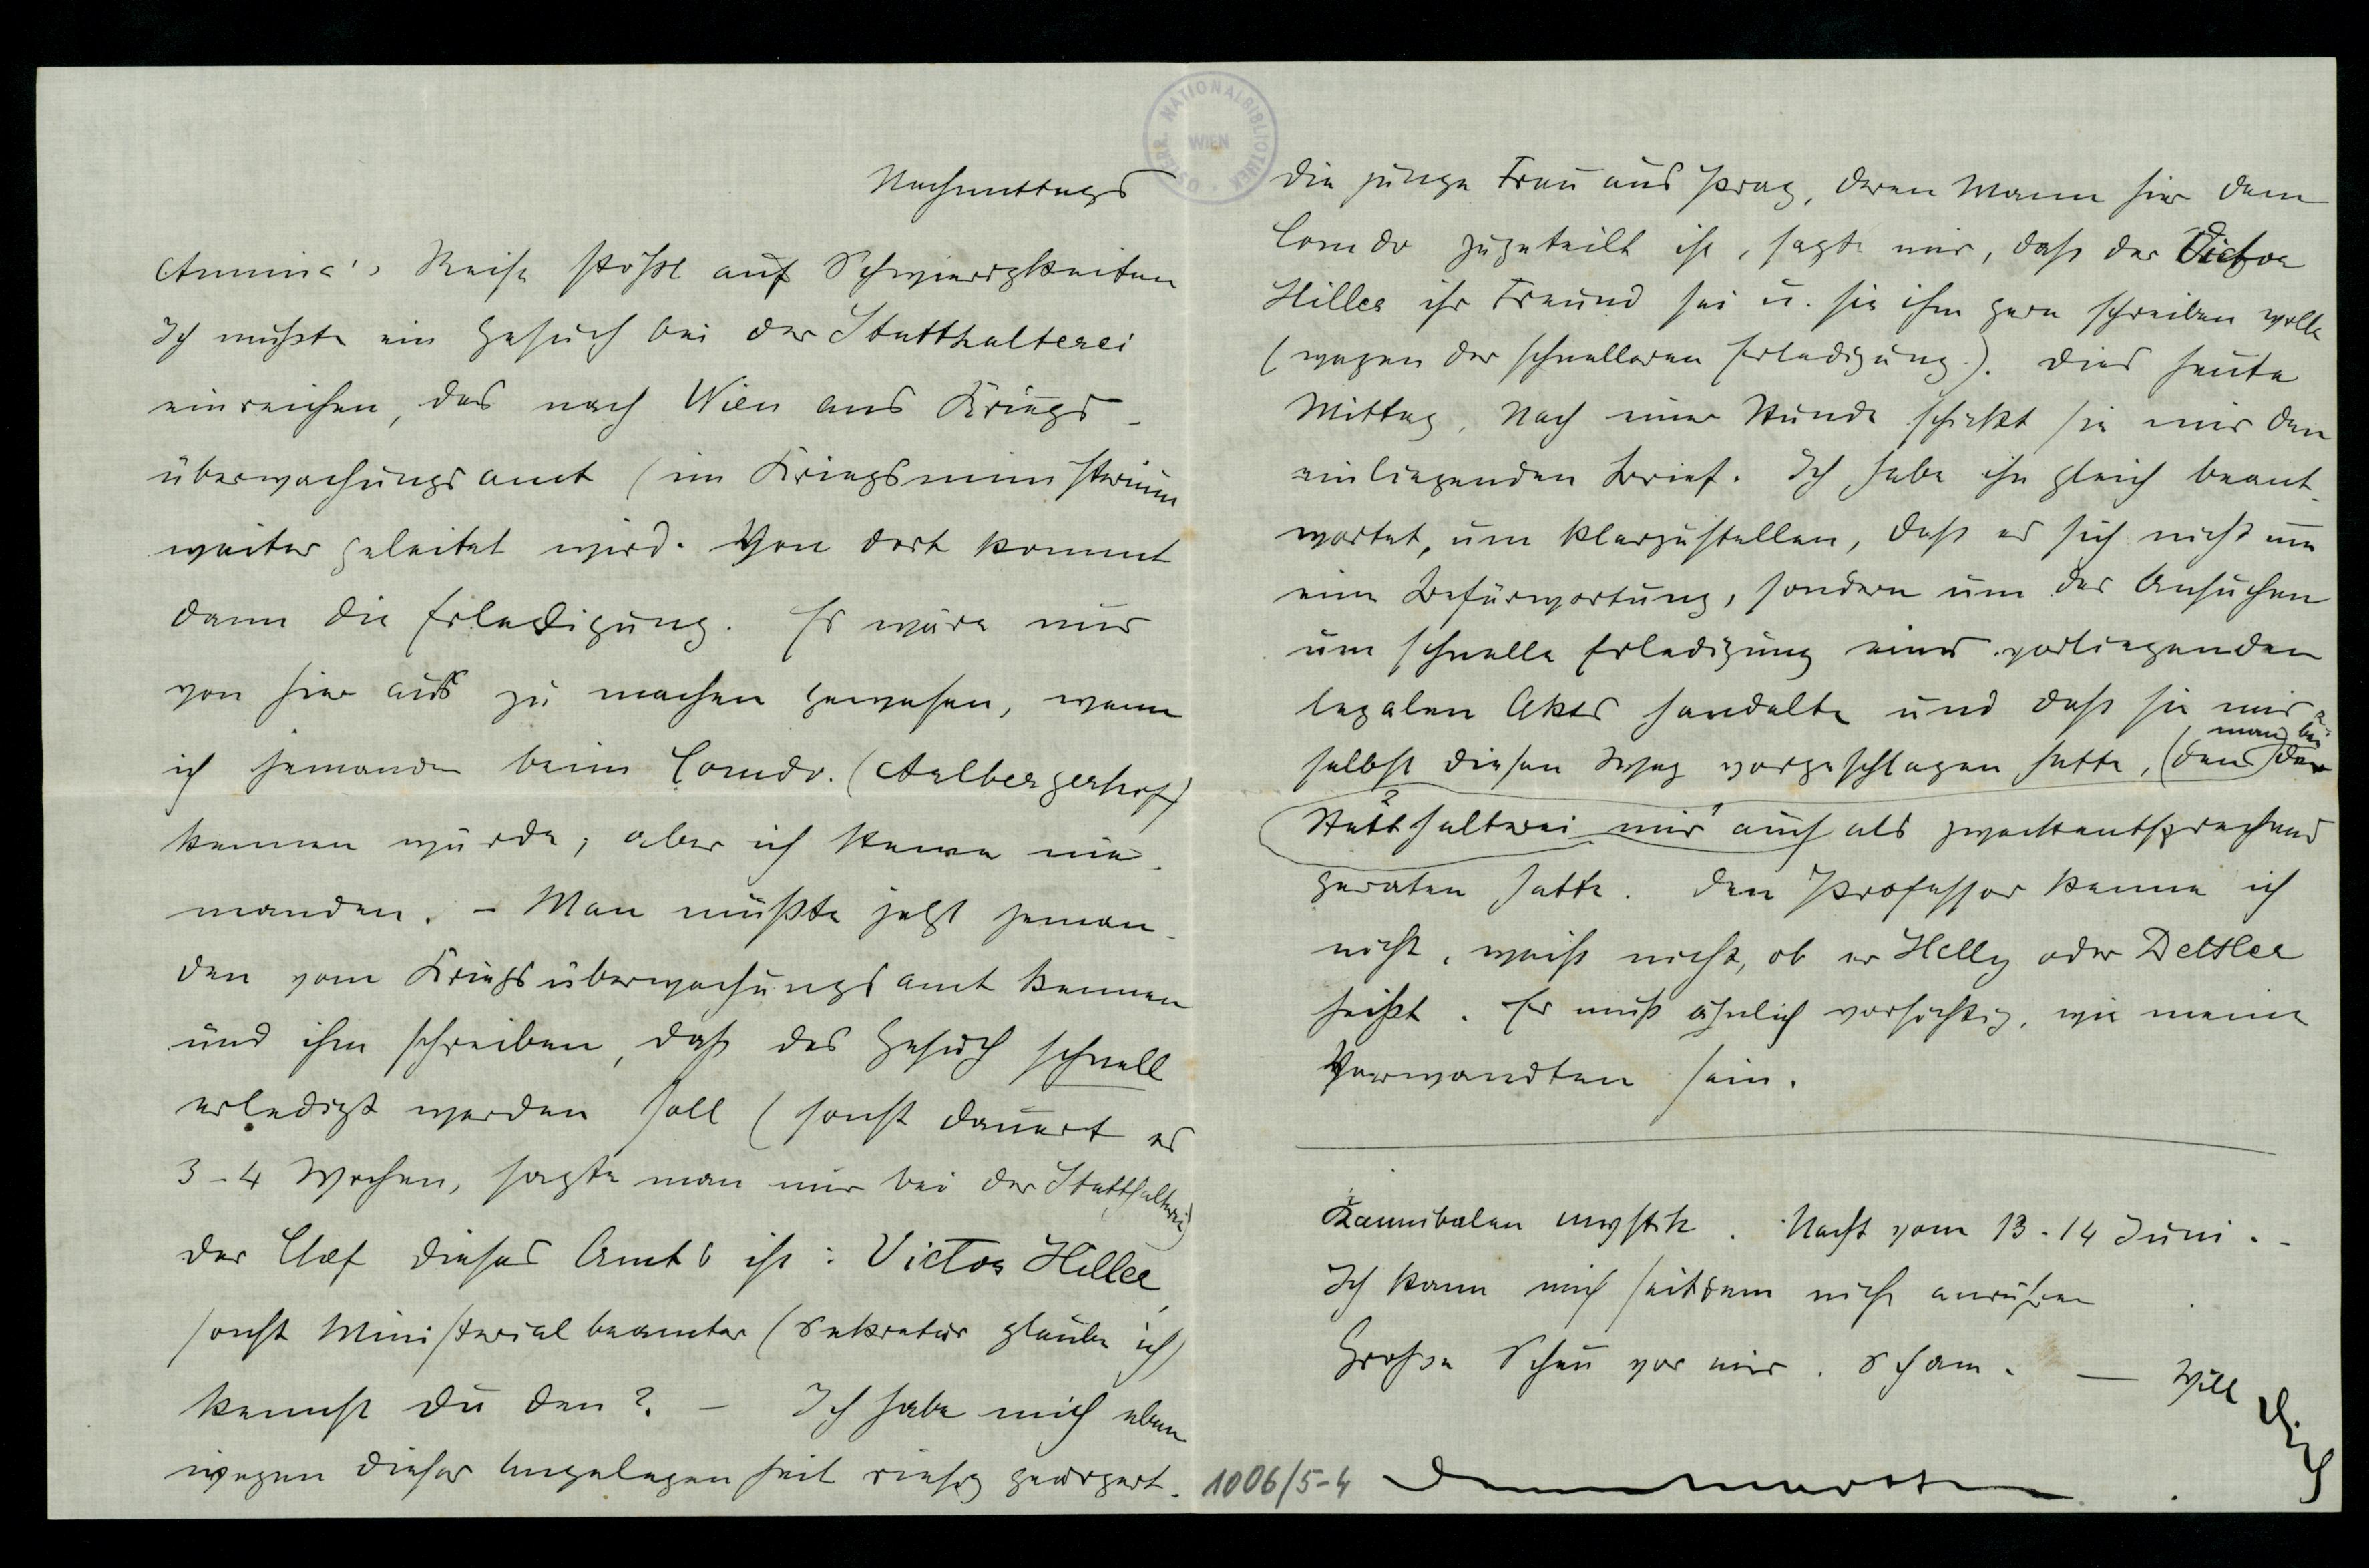 Nachmittags
Annina's Reise stößt auf Schwierigkeiten
Ich mußte ein Gesuch bei der Statthalterei
einreichen, das nach Wien ans Kriegs-
überwachungsamt (im Kriegsministerium
weiter geleitet wird. Von dort kommt
dann die Erledigung. Es wäre nur
von hier aus zu machen gewesen, wenn
ich jemanden beim Comdo. (
kennen würde; aber ich kenne nie-
manden. – Man müßte jetzt jeman-
den vom Kriegsüberwachungsamt kennen
und ihm schreiben, daß das Gesuch schnell
erledigt werden soll (sonst dauert es
3–4 Wochen, sagte man mir bei der Statthalterei)
der Chef dieses Amts ist: Victor Hiller,
sonst Ministerialbeamter (Sekretär glaube ich)
kennst du den? – Ich habe mich eben
wegen dieser Angelegenheit riesig geärgert.
die junge Frau aus Prag, deren Mann hier dem
Comdo zugeteilt ist, sagte mir, daß der Victor
Hiller ihr Freund sei u. sie ihm gern schreiben wolle
(wegen der schnelleren Erledigung). Dies heute
Mittag. Nach einer Stunde schickt sie mir den
einliegenden Brief. Ich habe ihn gleich beant-
wortet, um klarzustellen, daß es sich nicht um
eine Befürwortung, sondern um das Ansuchen
um schnelle Erledigung eines vorliegenden
legalen Akts handelte und daß sie mir
selbst diesen Weg vorgeschlagen hatte, (den man bei der
Statthalterei mir auch als zweckentsprechend
geraten hatte. Den Professor kenne ich
nicht, weiß nicht, ob er Helly oder
heißt. Er muß ähnlich vorsichtig, wie meine
Verwandten sein.
Kannibalen mystik. Nacht vom 13.–14 Juni. –
Ich kann mich seitdem nicht anrühren
Große Scheu vor mir. Scham. — Will
1006/5-4
ÖSTERR. NATIONALBIBLIOTHEK WIEN